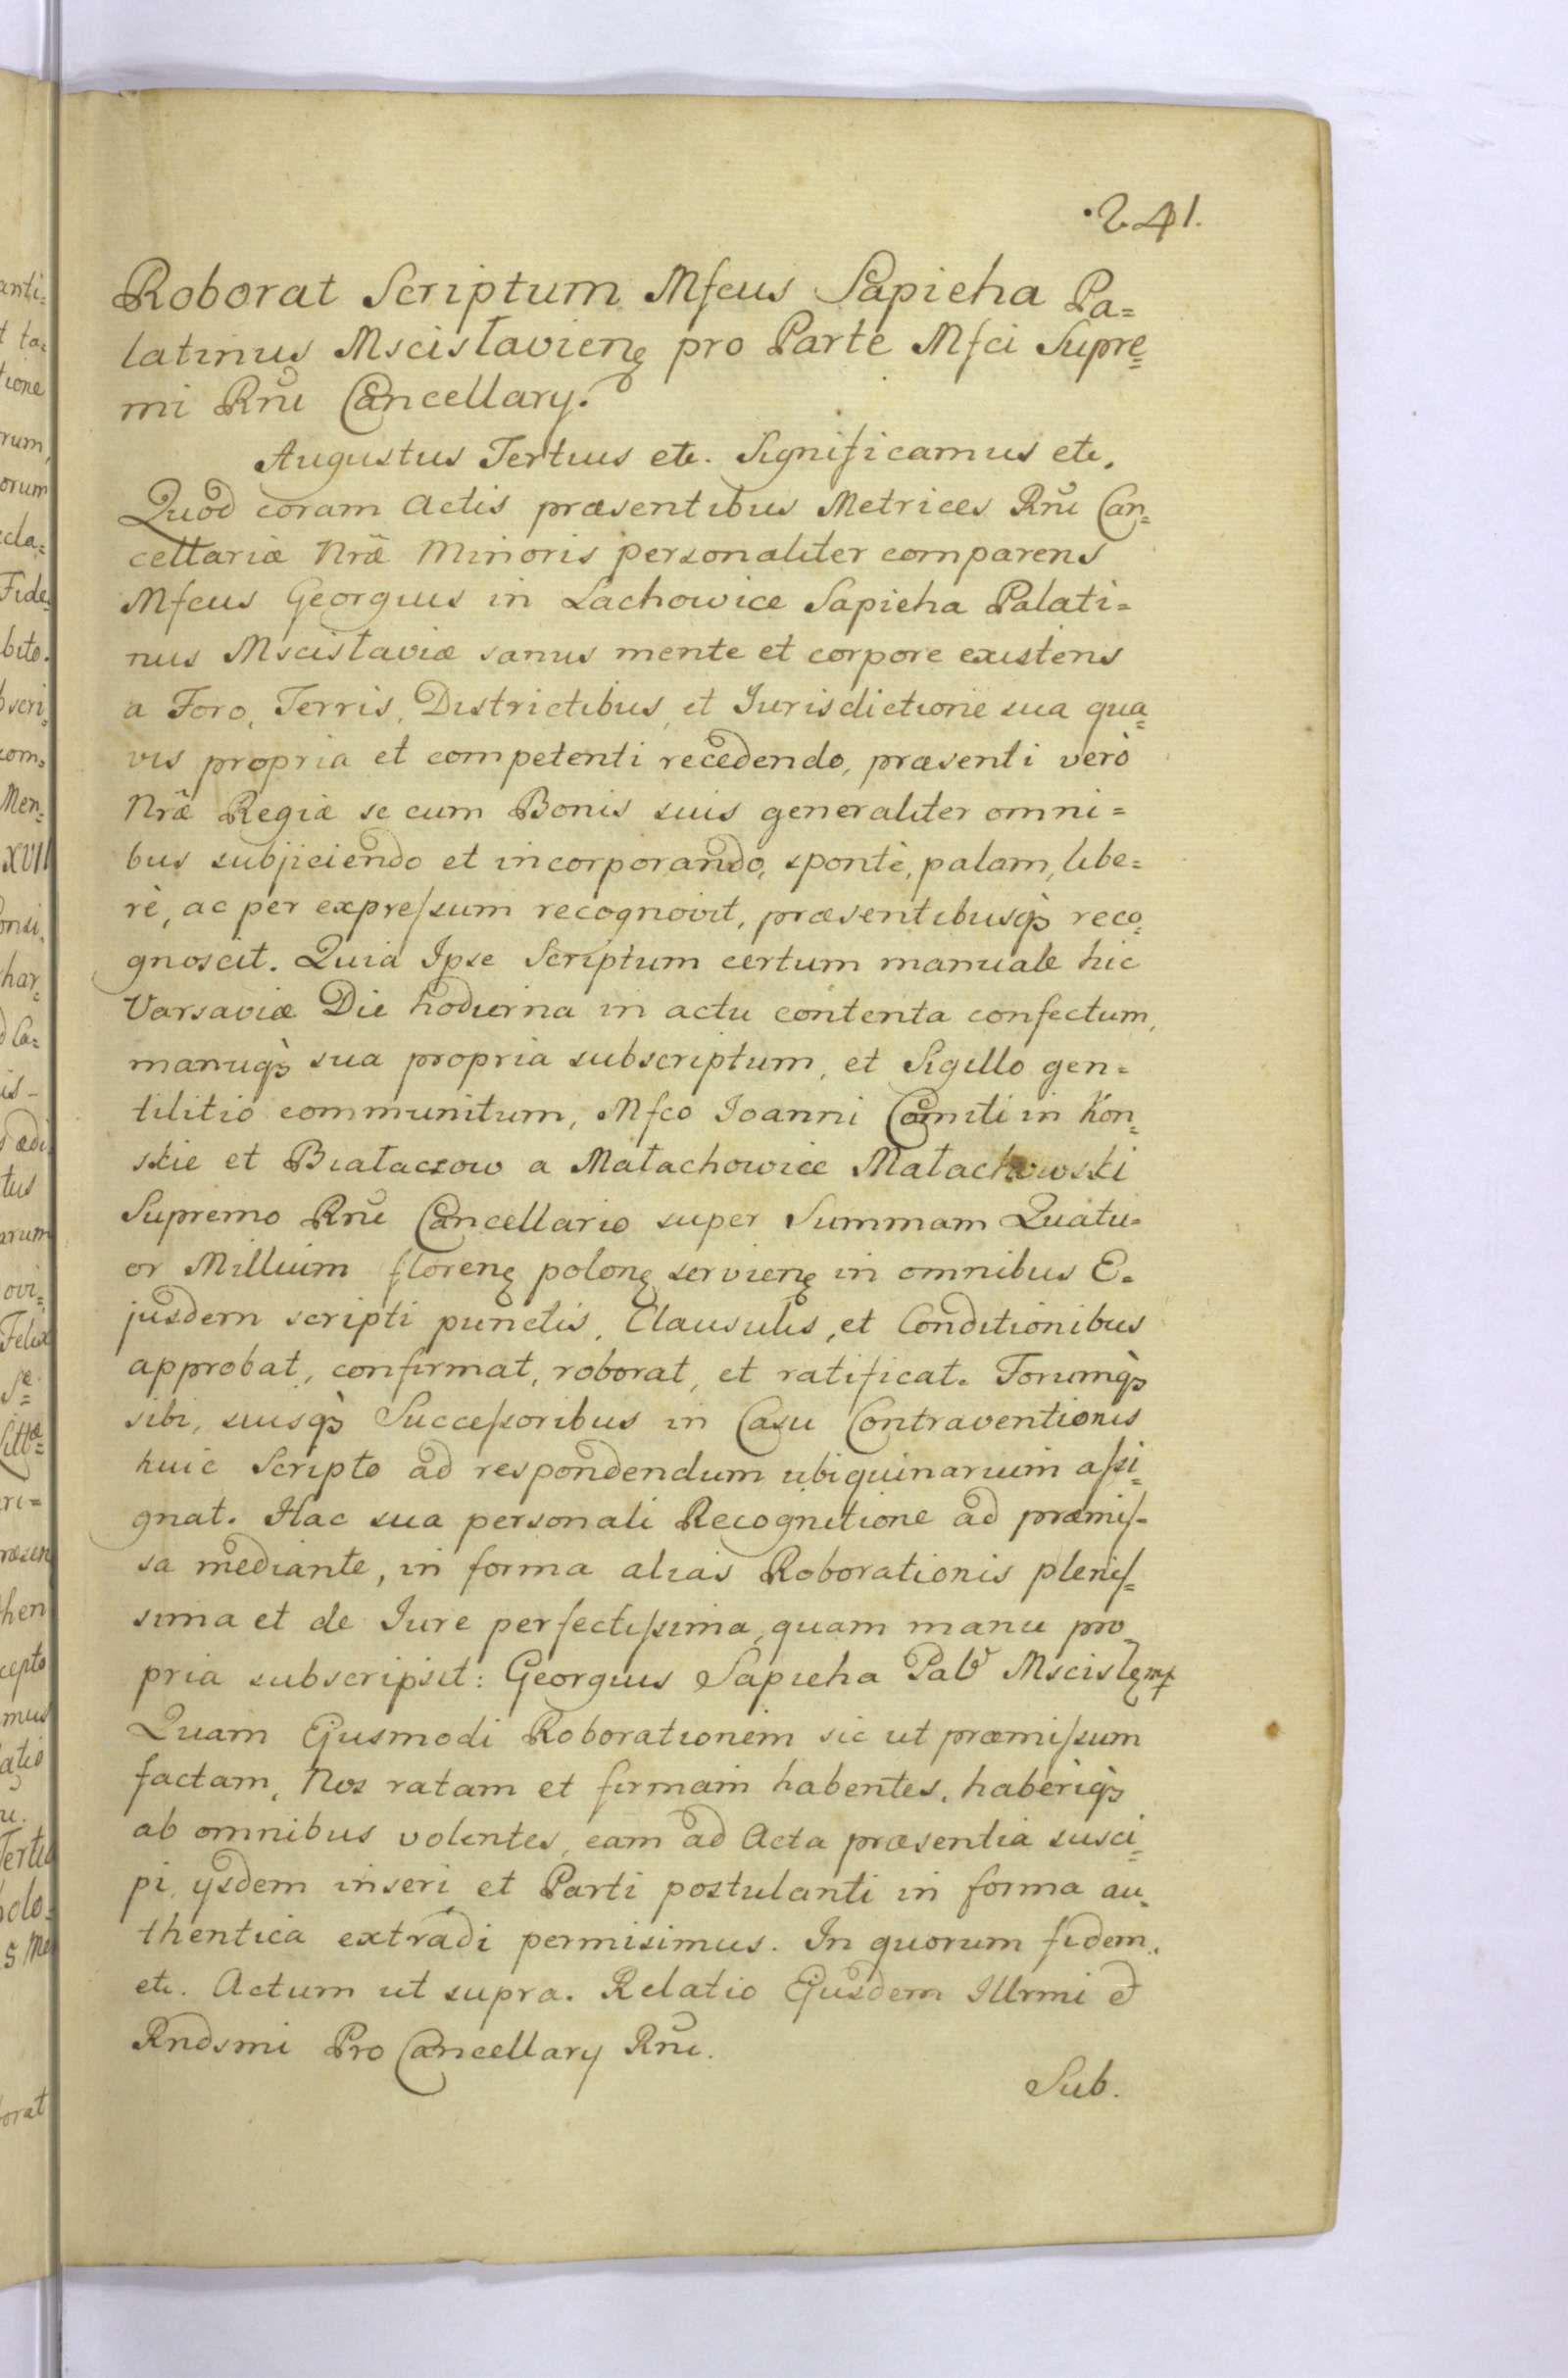 .241.
Roborat Scriptum Mfcus Sapieha Pa=
latinus Mscisłavienę pro Parte Mfci Supre=
mi Rñi Cancellary.
Augustus Tertius etc. Significamus etc.
Quod coram Actis præsentibus Metrices Rñi Can=
cellariæ Nræ Minoris personaliter comparens
Mfcus Georgius in Lachowice Sapieha Palati=
nus Mscisłaviæ sanus mente et corpore existens
a Foro, Terris, Districtibus, et Jurisdictione sua qua=
vis propria et competenti recedendo, præsenti verò
Nræ Regiæ se cum Bonis suis generaliter omni=
bus subjiciendo et incorporando, spontè, palam, libe=
rè, ac per expreſsum recognovit, præsentibusqꝫ reco=
gnoscit. Quia Ipse Scriptum certum manuale hic
Varsaviæ Die hodierna in actu contenta confectum,
manuqꝫ sua propria subscriptum, et Sigillo gen=
tilitio communitum, Mfco Ioanni Comiti in Kon=
skie et Białaczow a Małachowice Małachowski
Supremo Rñi Cancellario super Summam Quatu=
or Millium florenę polonę servienę in omnibus E=
jusdem scripti punctis, Clausulis, et Conditionibus
approbat, confirmat, roborat, et ratificat. Forumqꝫ
sibi, suisqꝫ Succeſsoribus in Casu Contraventionis
huic Scripto ad respondendum ubiquinarium aſsi=
gnat. Hac sua personali Recognitione ad præmiſ=
sa mediante, in forma alias Roborationis pleniſ=
sima et de Iure perfectiſsima, quam manu pro
pria subscripsit: Georgius Sapieha Palt Mscislę mp
Quam Ejusmodi Roborationem sic ut præmiſsum
factam, Nos ratam et firmam habentes, haberiqꝫ
ab omnibus volentes, eam ad Acta præsentia susci=
pi, ysdem inseri et Parti postulanti in forma au=
thentica extradi permisimus. In quorum fidem.
etc. Actum ut supra. Relatio Ejusdem Illrmi et
Rndsmi Pro Cancellary Rñi.
Sub.